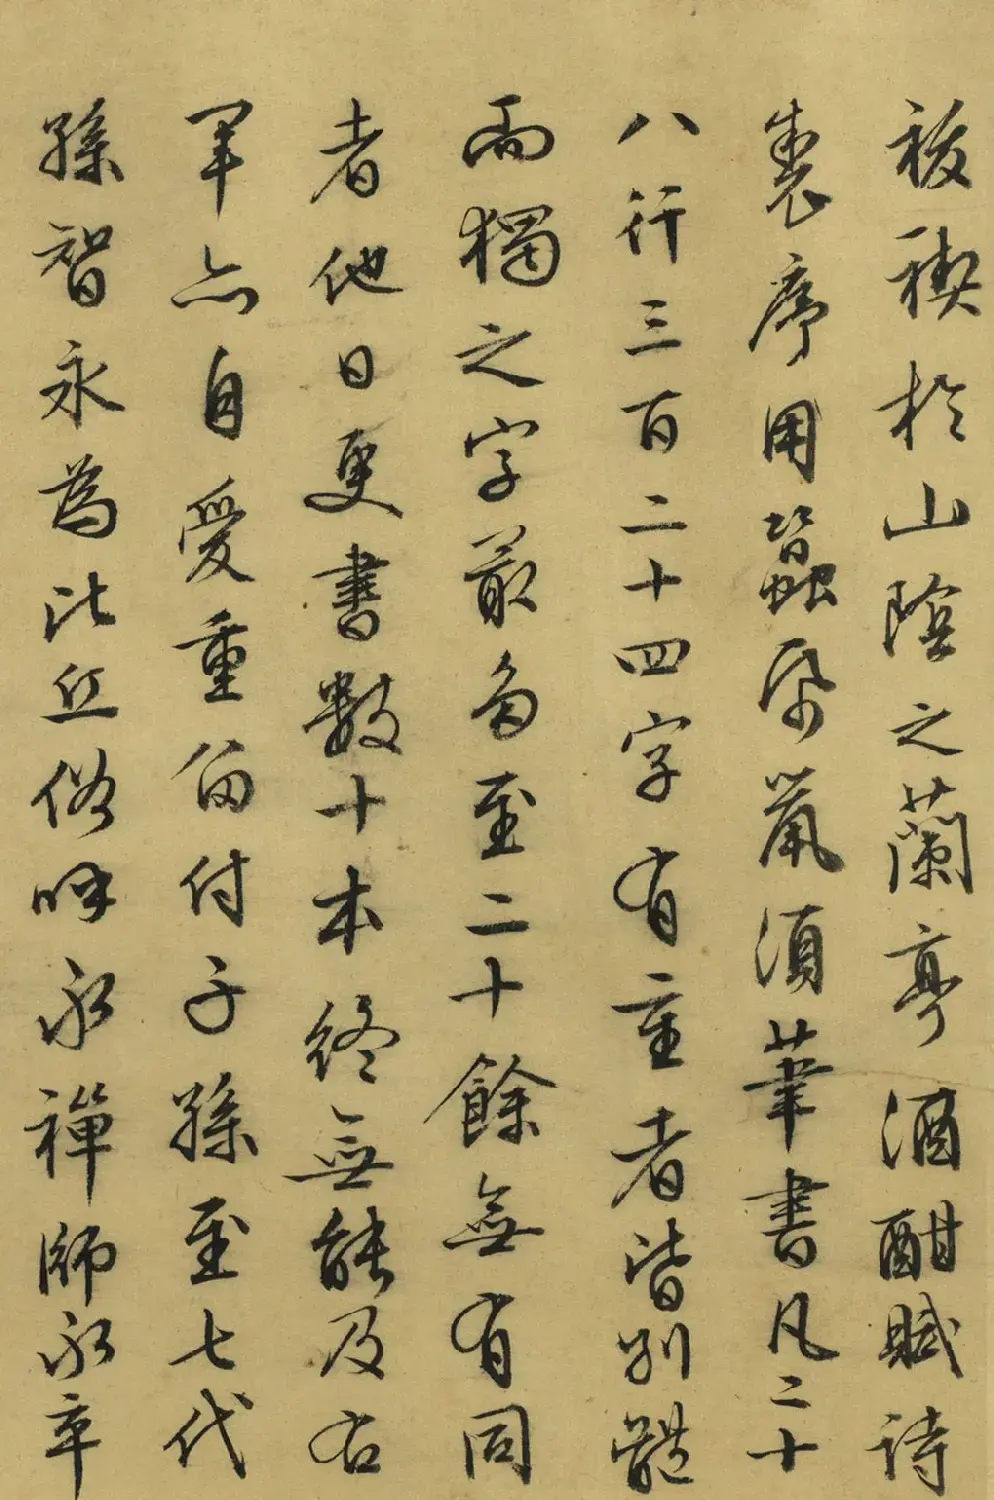 祓禊於山陰之蘭亭酒酣賦詩
製序用蠶紙鼠須筆書凡二十
八行三百二十四字有重者皆別體
而獨之字最多至二十餘無有同
者他日更書數十本終無能及右
軍亦自愛重留付子孫至七代
孫智永為比丘俗呼永禪師永卒